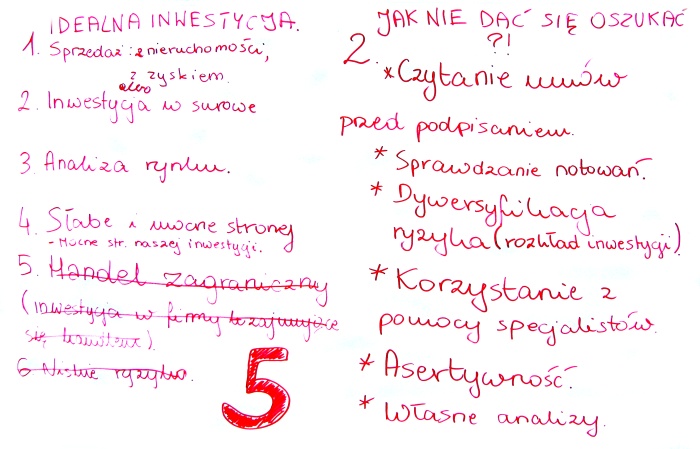 IDEALNA INWESTYCJA.
1. Sprzedaż nieruchomości,
z zyskiem.
2. Inwestycja w surowe
3. Analiza rynku.
4. Słabe i mocne stronej
- Mocne str. naszej inwestycji.
5. Handel zagraniczny
(inwestycja w firmy
się
6 Niskie ryzyko.
5
JAK NIE DAĆ SIĘ OSZUKAĆ
?!
2.
*Czytanie umów
przed podpisaniem.
* Sprawdzanie notowań.
* Dywersyfikacja
ryzyka (rozkład inwestycji)
* Korzystanie z
pomocy specjalistów.
* Asertywność.
* Własne analizy.